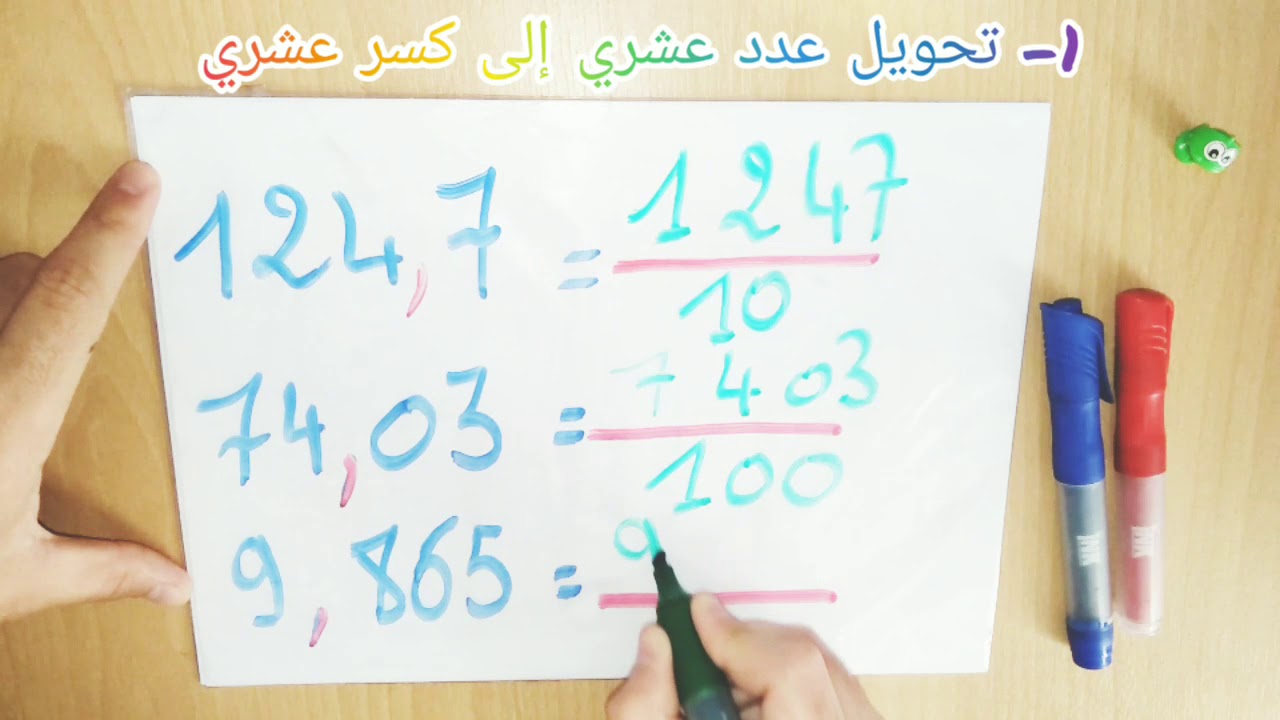 1- تحويل عدد عشري إلى كسر عشري
124,7 = 1247
10
74,03 = 7403
100
9,865 = 9